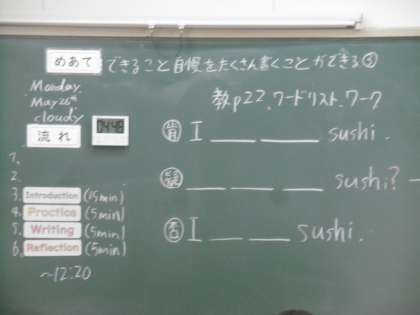 めあて できること自慢をたくさん書くことができる③
Monday,
May 26th
cloudy
流れ
04:48
教p22、ワードリスト、ワーク
肯 I __ __ sushi.
疑 __ __ __ sushi?
否 I __ __ sushi.
1.
2.
3. Introduction (15min)
4. Practice (5min)
5. Writing (5min)
6. Reflection (5min)
～12:20